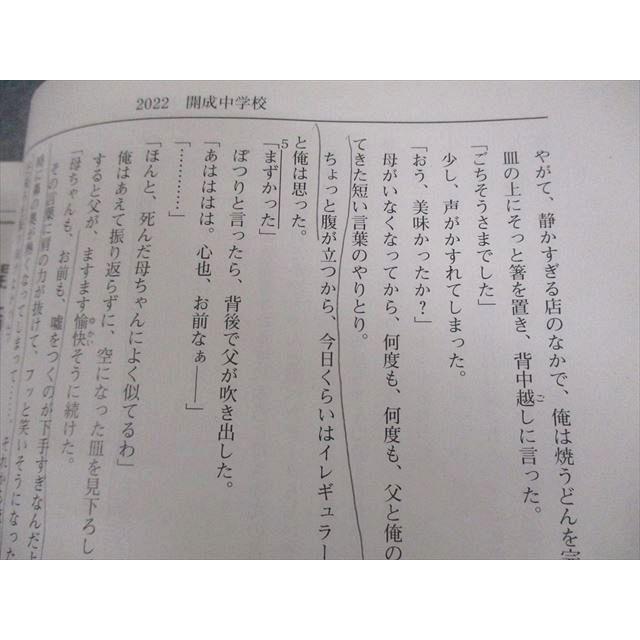 2022　開成中学校
やがて、静かすぎる店のなかで、俺は焼うどんを
皿の上にそっと箸を置き、背中越しに言った。
ご
「ごちそうさまでした」
少し、声がかすれてしまった。
「おう、美味かったか？」
母がいなくなってから、何度も、何度も、父と俺の
てきた短い言葉のやりとり。
ちょっと腹が立つから、今日くらいはイレギュラー
と俺は思った。
5
「まずかった」
ぽつりと言ったら、背後で父が吹き出した。
「あはははは。心也、お前なぁ――」
「…………」
「ほんと、死んだ母ちゃんによく似てるわ」
俺はあえて振り返らずに、空になった皿を見下ろし
すると父が、ますます愉快そうに続けた。
ゆかい
「母ちゃんも、お前も、嘘をつくのが下手すぎなんだよ
その言葉に肩の力が抜けて、フッと笑いそうになった